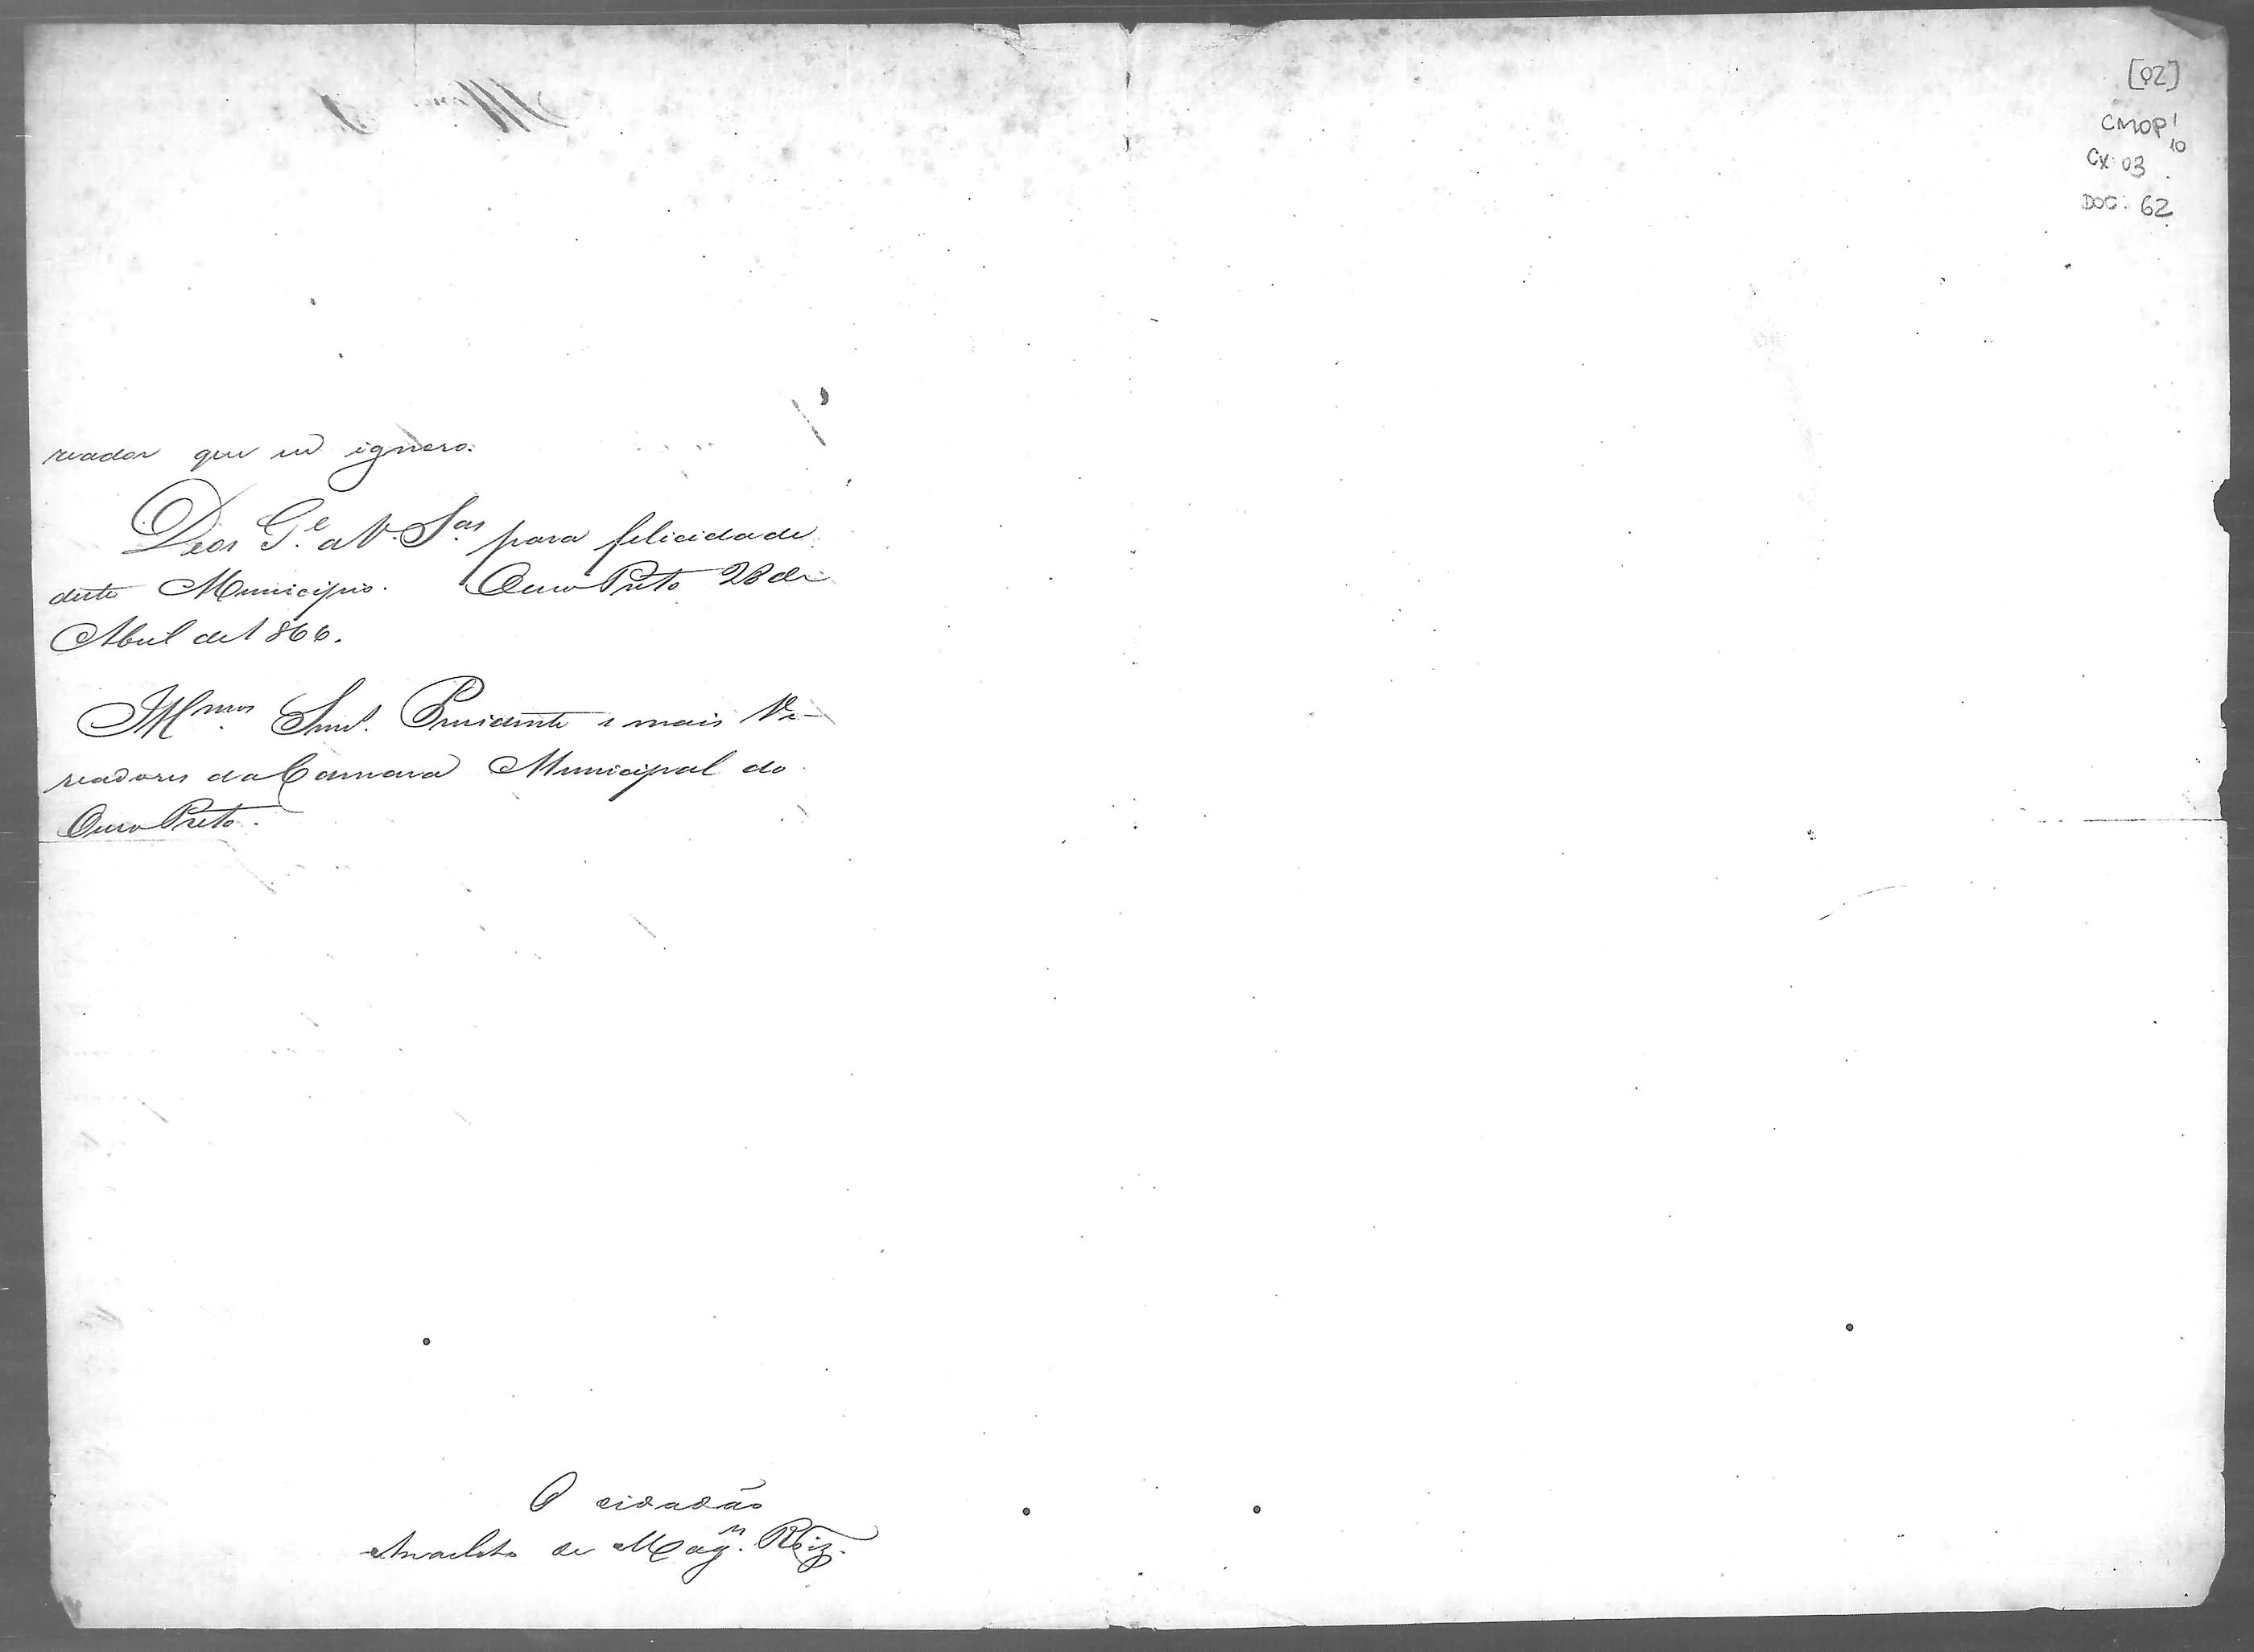 [02]
CMOP
10
Cx: 03
DOC: 62
reador que eu ignoro.
Deos G.e a V. S.as para felicidade
deste Municipio. Ouro Preto 28 de
Abril de 1866.
Illmos Snrs. Presidente e mais Ve-
readores da Camara Municipal do
Ouro Preto.
O cidadão
Anacleto de Mag.es Roiz.